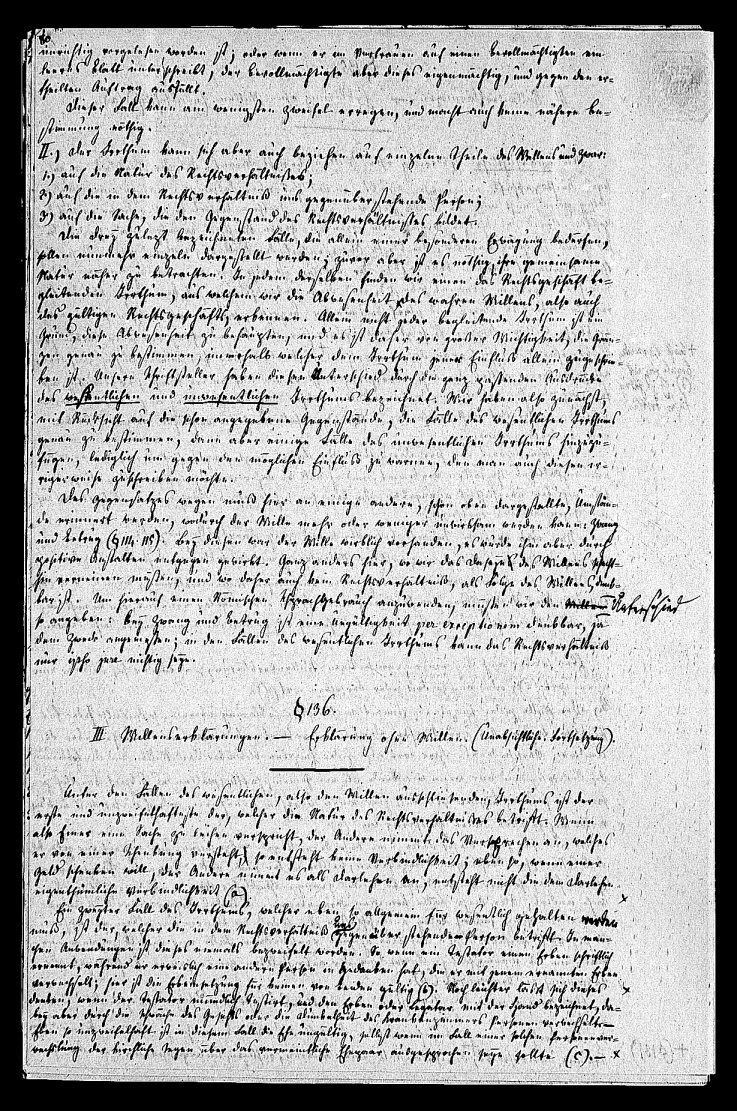 unrichtig vorgelesen worden ist; oder wenn er im Vertrauen auf einen Bevollmächtigten ein
leeres Blatt unterschreibt, der Bevollmächtigte aber dieses eigenmächtig, und gegen den er-
theilten Auftrag ausfüllt.
Dieser Fall kann am wenigsten Zweifel erregen, und macht auch keine nähere Be-
stimmung nöthig.
II.) Der Irrthum kann sich aber auch beziehen auf einzelne Theile des Willens und zwar:
1.) auf die Natur des Rechtsverhältnisses;
2) auf die in dem Rechtsverhältniß uns gegenüber stehende Person;
3) auf die Sache, die den Gegenstand des Rechtsverhältnisses bildet.
Die drey zuletzt bezeichneten Fälle, die allein einer besonderen Erwägung bedürfen,
sollen nunmehr einzeln dargestellt werden; zuvor aber ist es nöthig, ihre gemeinsame
Natur näher zu betrachten. In jedem derselben finden wir einen das Rechtsgeschäft be-
gleitenden Irrthum, aus welchem wir die Abwesenheit des wahren Willens, also auch
des gültigen Rechtsgeschäfts, erkennen. Allein nicht jeder begleitende Irrthum ist ein
Grund, diese Abwesenheit zu behaupten, und es ist daher von großer Wichtigkeit, die Grän-
zen genau zu bestimmen, innerhalb welcher dem Irrthum jener Einfluß allein zugeschrie-
ben ist. Unsere Schriftsteller haben diesen Unterschied durch die ganz passenden Ausdrücke
des wesentlichen und unwesentlichen Irrthums bezeichnet. Wir haben also zunächst,
mit Rücksicht auf die schon angegebene Gegenstände, die Fälle des wesentlichen Irrthums
genau zu bestimmen, dann aber einige Fälle des unwesentlichen Irrthums hinzuzu-
fügen, lediglich um gegen den möglichen Einfluß zu warnen, den man auch diesen ir-
rigerweise zuschreiben möchte.
Des Gegensatzes wegen muß hier an einige andere, schon oben dargestellte, Umstän-
de erinnert werden, wodurch der Wille mehr oder weniger unwirksam werden kann: Zwang
und Betrug (§ 114. 115). Bey diesen war der Wille wirklich vorhanden, es wurde ihm aber durch
positive Anstalten entgegen gewirkt. Ganz anders hier, wo wir das Daseyn des Willens schlecht-
hin verneinen müssen, und wo daher auch kein Rechtsverhältniß, als Folge des Willens, denk-
bar ist. Um hierauf einen Römischen Sprachgebrauch anzuwenden, müssen wir den Unterschied
so angeben: bey Zwang und Betrug ist eine Ungültigkeit per exceptionem denkbar, ja
dem Zweck angemessen; in den Fällen des wesentlichen Irrthums kann das Rechtsverhältniß
nur ipso jure nichtig seyn.
§ 136.
III. Willenserklärungen. — Erklärung ohne Willen. (Unabsichtliche. Fortsetzung).
Unter den Fällen des wesentlichen, also den Willen ausschließenden, Irrthums ist der
erste und unzweifelhafteste der, welcher die Natur des Rechtsverhältnisses betrifft. Wenn
also Einer eine Sache zu leihen verspricht, der Andere nimmt das Versprechen an, welches
er von einer Schenkung versteht, so entsteht keine Verbindlichkeit; eben so, wenn einer
Geld schenken will, der Andere nimmt es als Darlehen an, entsteht nicht die dem Darlehen
eigenthümliche Verbindlichkeit (a).
Ein zweyter Fall des Irrthums, welcher eben so allgemein für wesentlich gehalten werden
muß, ist der, welcher die in dem Rechtsverhältniß uns gegenüber stehende Person betrifft. In man-
chen Anwendungen ist dieses niemals bezweifelt worden. So wenn ein Testator einen Erben schriftlich
ernennt, während er erweislich eine andere Person in Gedanken hat, die er mit jenem ernannten Erben
verwechselt; hier ist die Erbeinsetzung für keinen von beiden gültig (b). Noch leichter läßt sich dieses
denken, wenn der Testator mündlich testirt, und den Erben oder Legatar mit der Hand bezeichnet, da-
bey aber durch die Schwäche des Gesichts oder die Dunkelheit des Krankenzimmers Personen verwechselt. —
Eben so unzweifelhaft ist in diesem Fall die Ehe ungültig, selbst wenn im Fall einer solchen Personenver-
wechslung der kirchliche Segen über das vermeintliche Ehepaar ausgesprochen seyn sollte (c). —